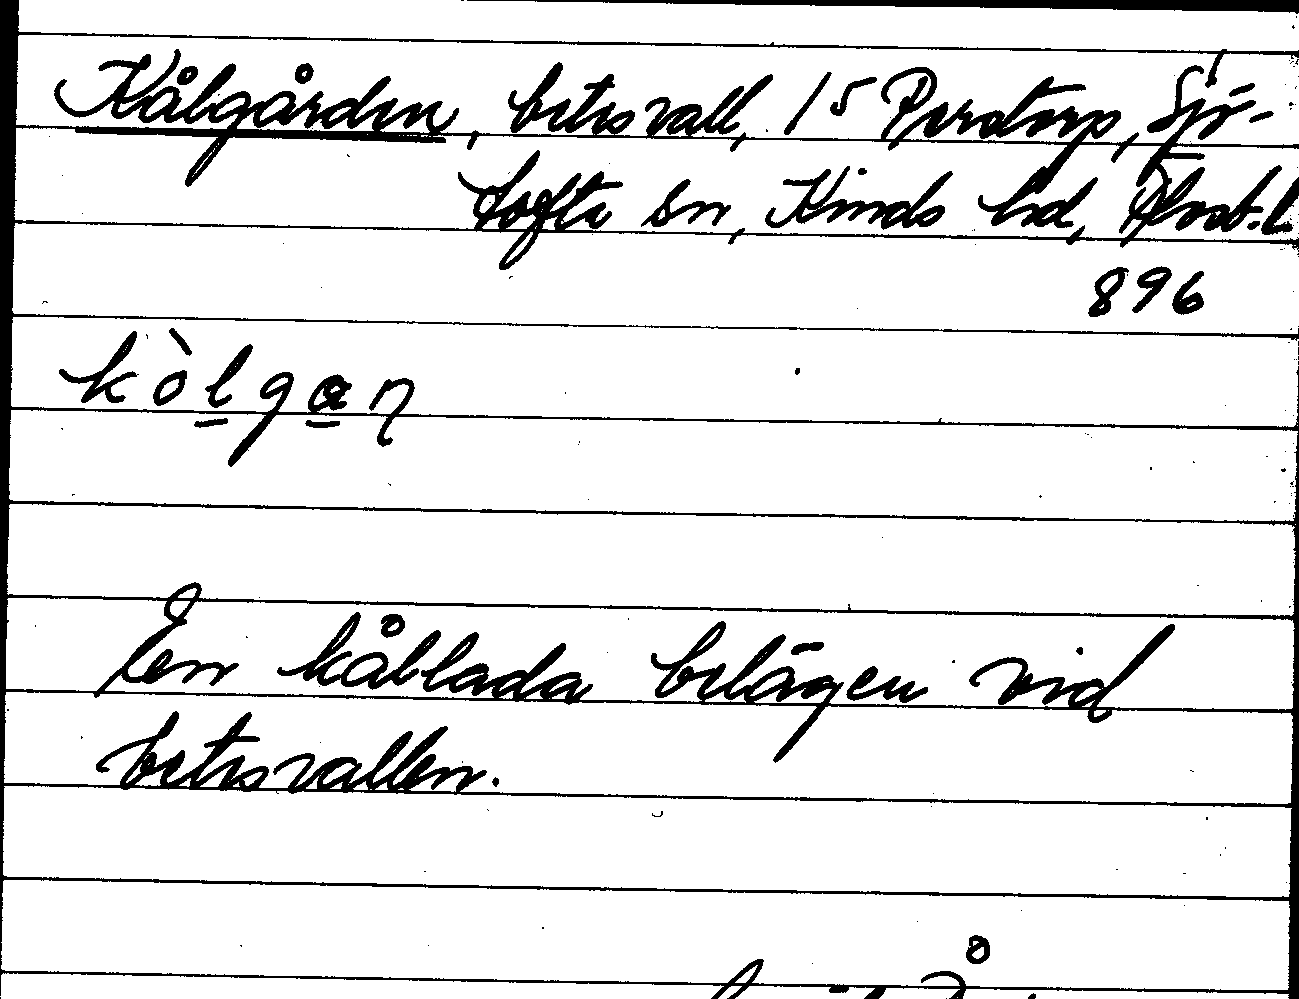 Kålgården, betesvall, 15 Perstorp, Sjö-
tofta sn, Kinds hd, Älvsb. l.
896
kòlgan
En kållada belägen vid
betesvallen.